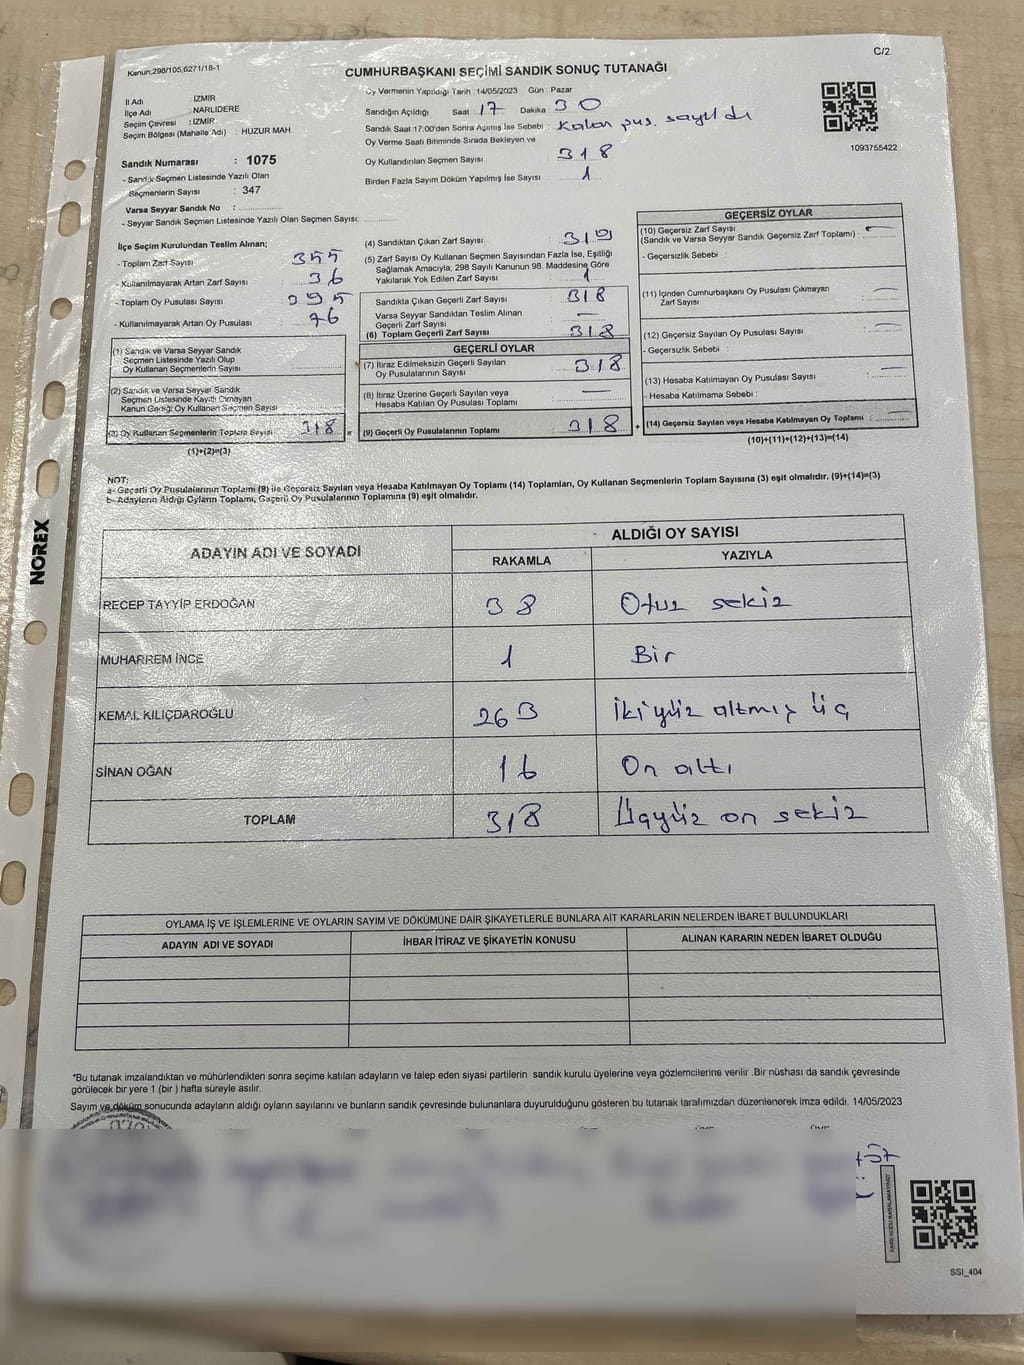 C/2
Kanun:298/105,6271/18-1
CUMHURBAŞKANI SEÇİMİ SANDIK SONUÇ TUTANAĞI
İl Adı : İZMİR
İlçe Adı : NARLIDERE
Seçim Çevresi : İZMİR
Seçim Bölgesi (Mahalle Adı) : HUZUR MAH
Sandık Numarası : 1075
- Sandık Seçmen Listesinde Yazılı Olan
Seçmenlerin Sayısı : 347
Varsa Seyyar Sandık No :
- Seyyar Sandık Seçmen Listesinde Yazılı Olan Seçmen Sayısı:
Oy Vermenin Yapıldığı Tarih : 14/05/2023 Gün : Pazar
Sandığın Açıldığı Saat 17 Dakika 30
Sandık Saat 17.00'den Sonra Açımış İse Sebebi : Kalan pus. sayıldı
Oy Verme Saati Bitiminde Sırada Bekleyen ve
Oy Kullandırılan Seçmen Sayısı 318
Birden Fazla Sayım Döküm Yapılmış İse Sayısı 1
1093755422
İlçe Seçim Kurulundan Teslim Alınan;
- Toplam Zarf Sayısı : 355
- Kullanılmayarak Artan Zarf Sayısı : 36
- Toplam Oy Pusulası Sayısı : 395
- Kullanılmayarak Artan Oy Pusulası : 76
(1) Sandık ve Varsa Seyyar Sandık
Seçmen Listesinde Yazılı Olup
Oy Kullanan Seçmenlerin Sayısı
(2) Sandık ve Varsa Seyyar Sandık
Seçmen Listesinde Kayıtlı Olmayan
Kanun Gereği Oy Kullanan Seçmen Sayısı
(3) Oy Kullanan Seçmenlerin Toplam Sayısı 318
(1)+(2)=(3)
(4) Sandıktan Çıkan Zarf Sayısı : 319
(5) Zarf Sayısı Oy Kullanan Seçmen Sayısından Fazla İse, Eşitliği
Sağlamak Amacıyla; 298 Sayılı Kanunun 98. Maddesine Göre
Yakılarak Yok Edilen Zarf Sayısı : 1
Sandıkta Çıkan Geçerli Zarf Sayısı : 318
Varsa Seyyar Sandıktan Teslim Alınan
Geçerli Zarf Sayısı : —
(6) Toplam Geçerli Zarf Sayısı 318
GEÇERLİ OYLAR
(7) İtiraz Edilmeksizin Geçerli Sayılan
Oy Pusulalarının Sayısı : 318
(8) İtiraz Üzerine Geçerli Sayılan veya
Hesaba Katılan Oy Pusulası Toplamı : —
(9) Geçerli Oy Pusulalarının Toplamı : 318
GEÇERSİZ OYLAR
(10) Geçersiz Zarf Sayısı
(Sandık ve Varsa Seyyar Sandık Geçersiz Zarf Toplamı) : —
- Geçersizlik Sebebi :
(11) İçinden Cumhurbaşkanı Oy Pusulası Çıkmayan
Zarf Sayısı : —
(12) Geçersiz Sayılan Oy Pusulası Sayısı : —
- Geçersizlik Sebebi :
(13) Hesaba Katılmayan Oy Pusulası Sayısı : —
- Hesaba Katılmama Sebebi :
(14) Geçersiz Sayılan veya Hesaba Katılmayan Oy Toplamı : —
(10)+(11)+(12)+(13)=(14)
NOT:
a- Geçerli Oy Pusulalarının Toplamı (9) ile Geçersiz Sayılan veya Hesaba Katılmayan Oy Toplamı (14) Toplamları, Oy Kullanan Seçmenlerin Toplam Sayısına (3) eşit olmalıdır. (9)+(14)=(3)
b- Adayların Aldığı Oyların Toplamı, Geçerli Oy Pusulalarının Toplamına (9) eşit olmalıdır.
NOREX
ADAYIN ADI VE SOYADI
ALDIĞI OY SAYISI
RAKAMLA YAZIYLA
RECEP TAYYİP ERDOĞAN 38 Otuz sekiz
MUHARREM İNCE 1 Bir
KEMAL KILIÇDAROĞLU 263 İkiyüz altmış üç
SİNAN OĞAN 16 On altı
TOPLAM 318 Üçyüz on sekiz
OYLAMA İŞ VE İŞLEMLERİNE VE OYLARIN SAYIM VE DÖKÜMÜNE DAİR ŞİKAYETLERLE BUNLARA AİT KARARLARIN NELERDEN İBARET BULUNDUKLARI
ADAYIN ADI VE SOYADI İHBAR İTİRAZ VE ŞİKAYETİN KONUSU ALINAN KARARIN NEDEN İBARET OLDUĞU
*Bu tutanak imzalandıktan ve mühürlendikten sonra seçime katılan adayların ve talep eden siyasi partilerin sandık kurulu üyelerine veya gözlemcilerine verilir .Bir nüshası da sandık çevresinde
görülecek bir yere 1 (bir ) hafta süreyle asılır.
Sayım ve döküm sonucunda adayların aldığı oyların sayılarını ve bunların sandık çevresinde bulunanlara duyurulduğunu gösteren bu tutanak tarafımızdan düzenlenerek imza edildi. 14/05/2023
SSI_404